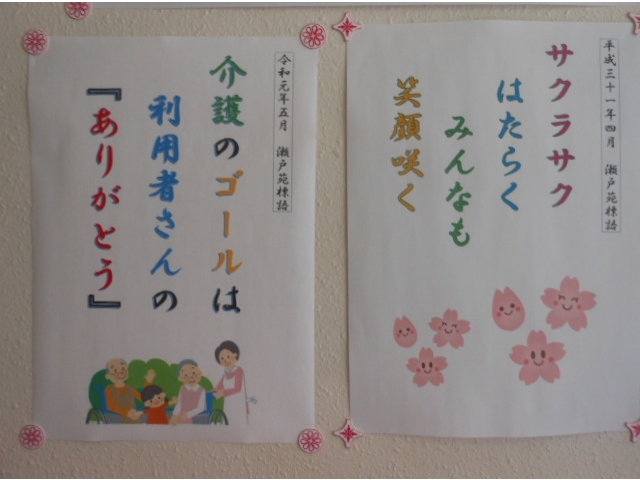 平成三十一年四月 瀬戸苑標語
サクラサク
はたらく
みんなも
笑顔咲く
令和元年五月 瀬戸苑標語
介護のゴールは
利用者さんの
『ありがとう』